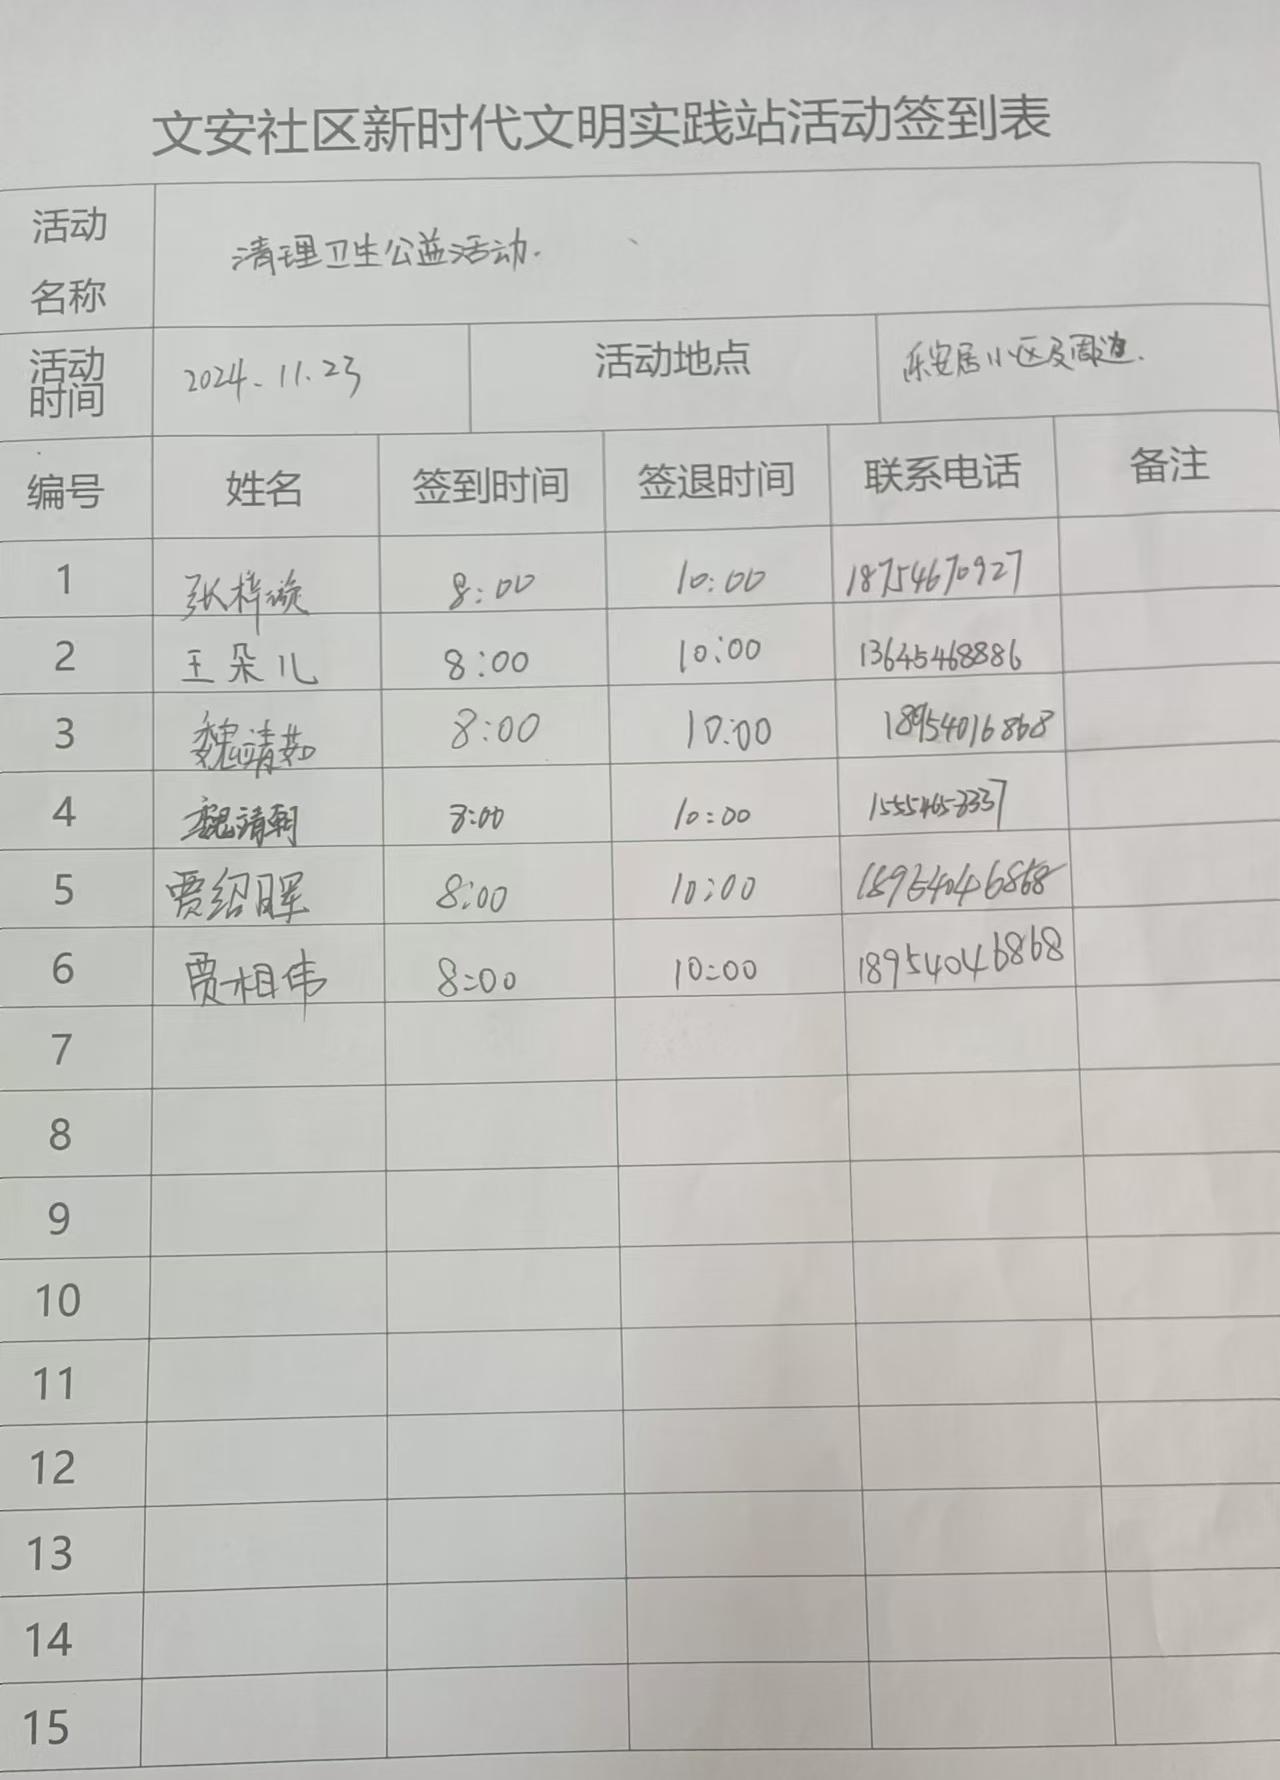 文安社区新时代文明实践站活动签到表
活动名称 清理卫生公益活动.
活动时间 2024.11.23 活动地点 乐安居小区及周边.
编号 姓名 签到时间 签退时间 联系电话 备注
1 张梓漩 8:00 10:00 18754670927
2 王朵儿 8:00 10:00 13645468886
3 魏靖茹 8:00 10:00 18954016868
4 魏清朝 8:00 10:00
5 贾绍晖 8:00 10:00 18954046868
6 贾相伟 8:00 10:00 18954046868
7
8
9
10
11
12
13
14
15